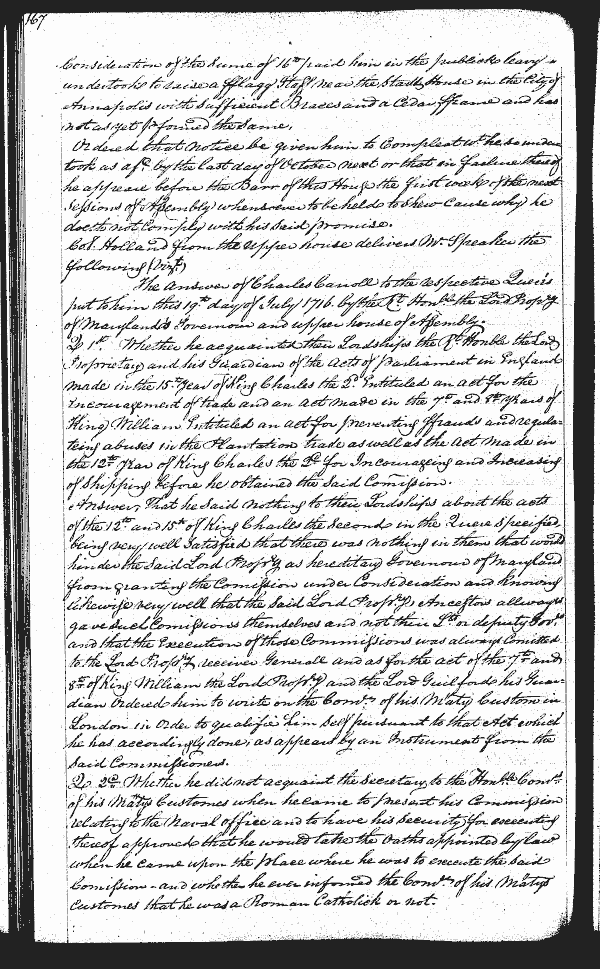 167
Consideration of the Sume of 16ll paid him in the publick leavy
undertooke to raise a fflagg Staff near the Stadt House in the City of
Annapolis with Sufficient Braces and a Cedar fframe and has
not as yet pformed the same.
Ordered that notice be given him to Compleat wt he so under
took as afd. by the last day of October next or that in failure thereof
he appeare before the Barr of this House the first week of the next
Sessions of Assembly whensoever to be held to shew Cause why he
doeth not Comply with his said promise.
Col. Holland from the upper house delivers Mr. Speaker the
following (Vizt.)
The Answer of Charles Carroll to the respective Queries
put to him this 19th day of July 1716. by the Rt. Honble the Lord Propry
of Marylands Governour and upper house of Assembly.
Q 1st. Whether he acquainted their Lordships the Rt. Honble the Lord
Proprietary and his Guardian of the Acts of Parliament in England
made in the 15th Year of King Charles the 2d. Intituled an act for the
Encouragement of trade and an Act made in the 7th and 8th Years of
King William Intituled an act for preventing ffrauds and regula-
teing abuses in the Plantation trade as well as the Act made in
the 12th Year of King Charles the 2d. for Incourageing and Increasing
of Shipping before he obtained the said Comission.
Answer, That he said nothing to their Lordships about the acts
of the 12th and 15th of King Charles the Second in the Quere Specified,
being very well Satisfied that there was nothing in them that would
hinder the said Lord Propry as hereditary Governour of Maryland
from granting the Comission under Consideration and knowing
likewise very well that the said Lord Proprys Ancestors allways
gave such Comissions themselves and not their Lt. or deputy Govrs
and that the Execution of those Commissions was always Comitted
to the Lord Proprys receiver Generall and as for the act of the 7th and
8th of King William the Lord Propry and the Lord Guilford his Guar-
dian Ordered him to write on the Comrs. of his Matys Custom in
London in order to qualifie him self pursuant to that Act which
he has accordingly done, as appears by an Instrument from the
said Commissioners.
Q 2d. Whether he did not acquaint the Secretary to the Honble Comrs.
of his Matys Customes when he came to present his Commission
relating to the Naval office and to have his Security for executing
thereof approved that he would take the Oaths appointed by law
when he came upon the place where he was to execute the said
Comission and whether he ever informed the Comrs. of his Matys
Customes that he was a Roman Catholick or not.